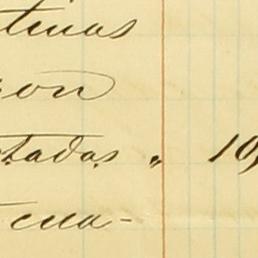 tinas
on
tadas „ 10,
cua-